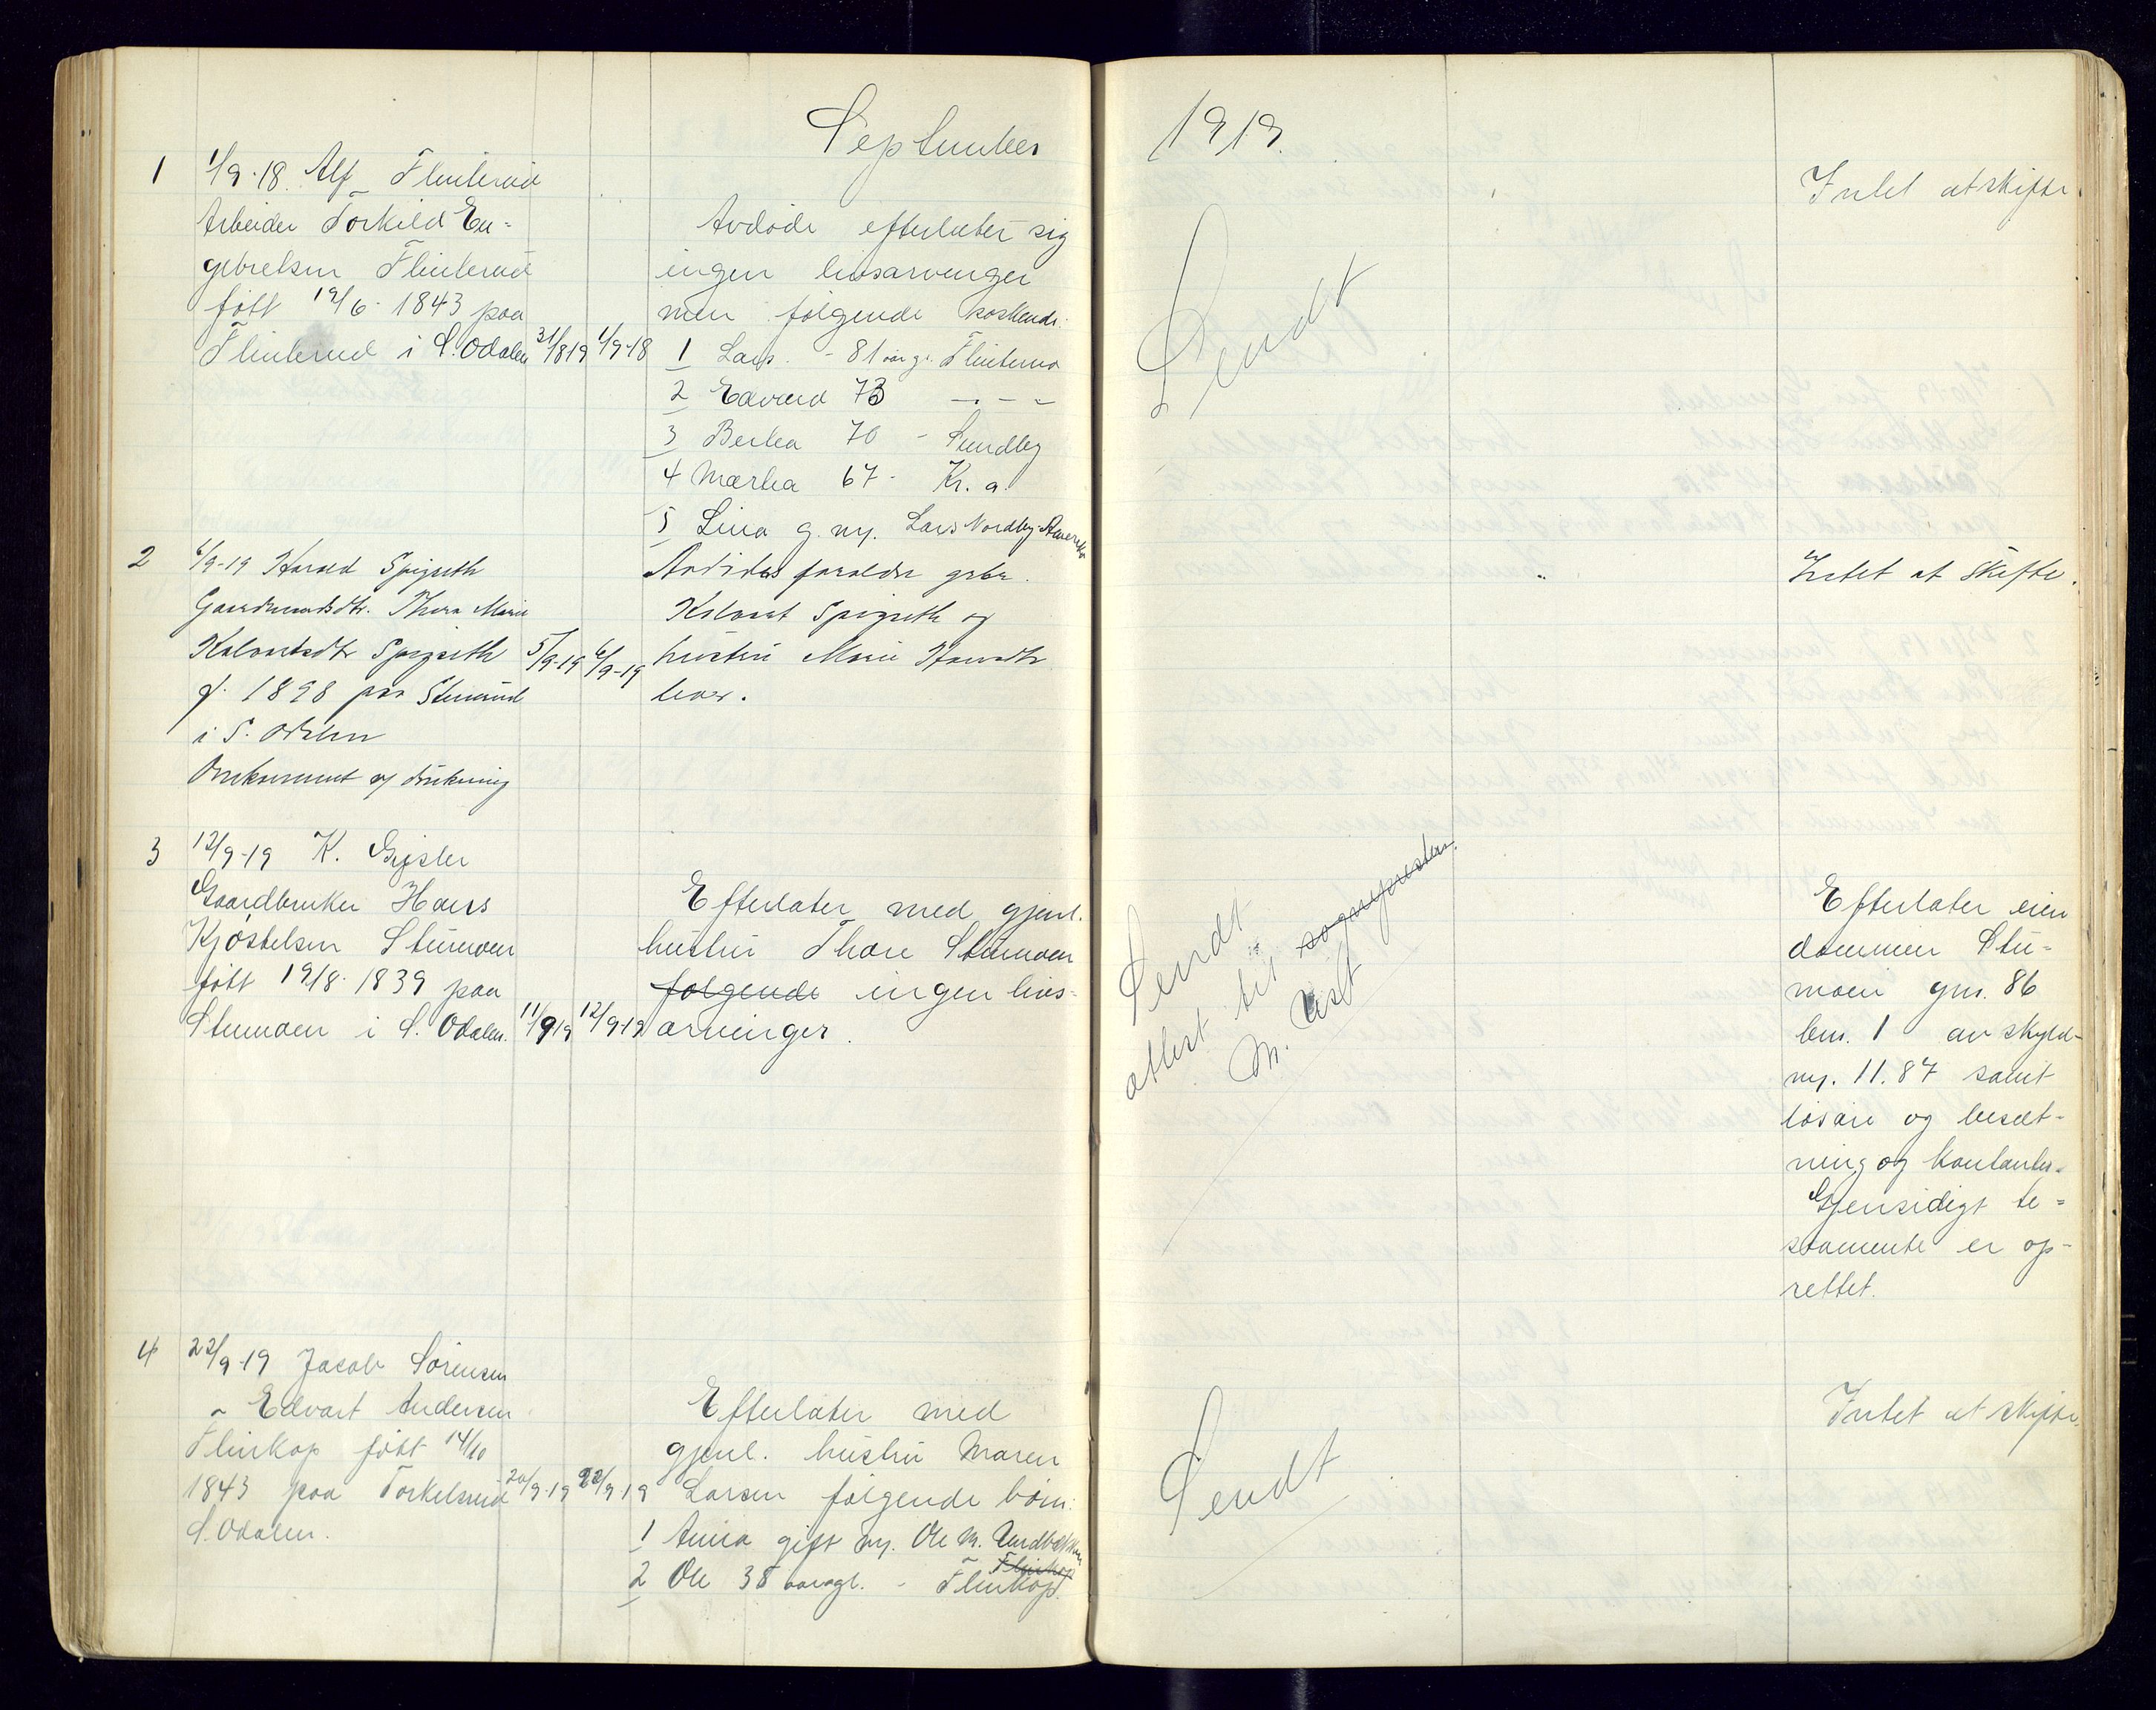 September 1919.
1
1/9-18. Alf Flinterud
Arbeider Torkild En-
gebretsen Flinterud
født 19/6-1843 paa
Flinterud i S. Odalen
31/8 19
1/9-18
Avdøde efterlater sig
ingen livsarvinger
men følgende søskende:
1 Lars - 81 aar g. Flinterud
2 Edvard 73 — " —
3 Berthea 70 - Sundby
4 Marthea 67 - Kr.a.
5 Lina g. m. Lars Nordby-Amerika
Sendt
Intet at skifte.
2
6/9-19 Harald Spigseth
Gaardmandsdtr. Thora Marie
Spigseth
f. 1898 paa
i S. Odalen
Omkommet v/ drukning
5/9-19
6/9-19
Avdødes forældre gbr.
Spigseth og
hustru Marie
lever.
Intet at skifte.
3
12/9-19 K. Gjisler
Gaardbruker Hans
Kjøstelsen Stumoen
født 19/8-1839 paa
Stumoen i S. Odalen.
11/9 19
12/9-19
Efterlater med gjenl.
hustru Thore Stumoen
følgende ingen livs-
arvinger.
Sendt
attest til sognepresten.
M. Uset
Efterlater eien
dommen Stu-
moen gnr. 86
bnr. 1 av skyld-
m. 11.87 samt
løsøre og besæt-
ning og kontanter.
Gjensidigt te-
stamente er op-
rettet.
4
22/9-19 Jacob Sørensen
~ Edvart Andersen
Flinkop født 14/10
1843 paa Torkelsrud
S. Odalen.
20/9-19
22/9-19
Efterlater med
gjenl. hustru Maren
Larsen følgende børn:
1 Anna gift m. Ole M. Sundbakken
Flinkop
2 Ole 38 aar gl. - Flinkop.
Sendt
Intet at skifte.